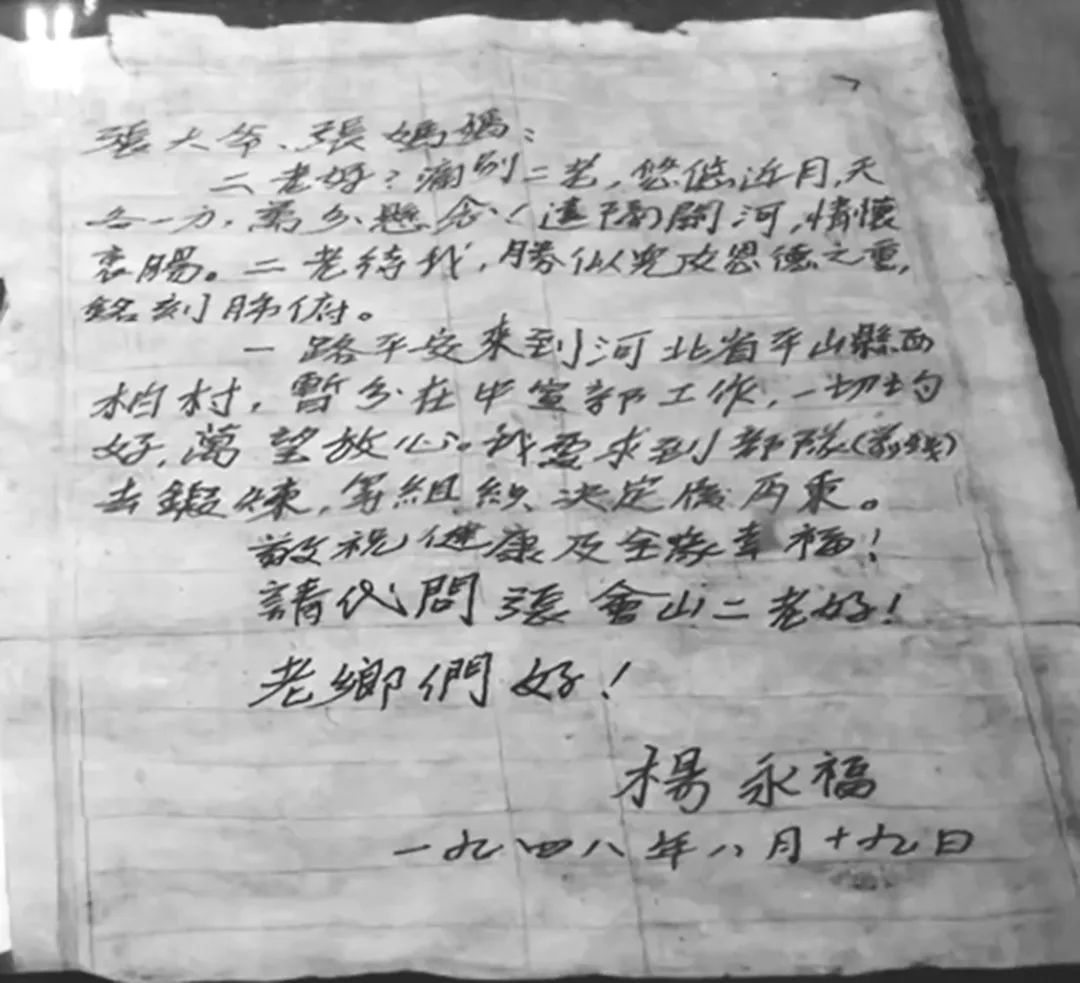 張大爷、張媽媽：
二老好？痛别二老，悠悠近月，天
各一方，萬分懸念！遠隔關河，情懷
衷腸。二老待我，勝似兒女恩德之重，
銘刻肺俯。
一路平安來到河北省平山縣西
柏村，暫分在中宣部工作，一切均
好，萬望放心。我要求到部隊（前线）
去鍛煉，等組织决定後再禀。
敬祝健康及全家幸福！
請代問張會山二老好！
老鄉們好！
楊永福
一九四八年八月十九日